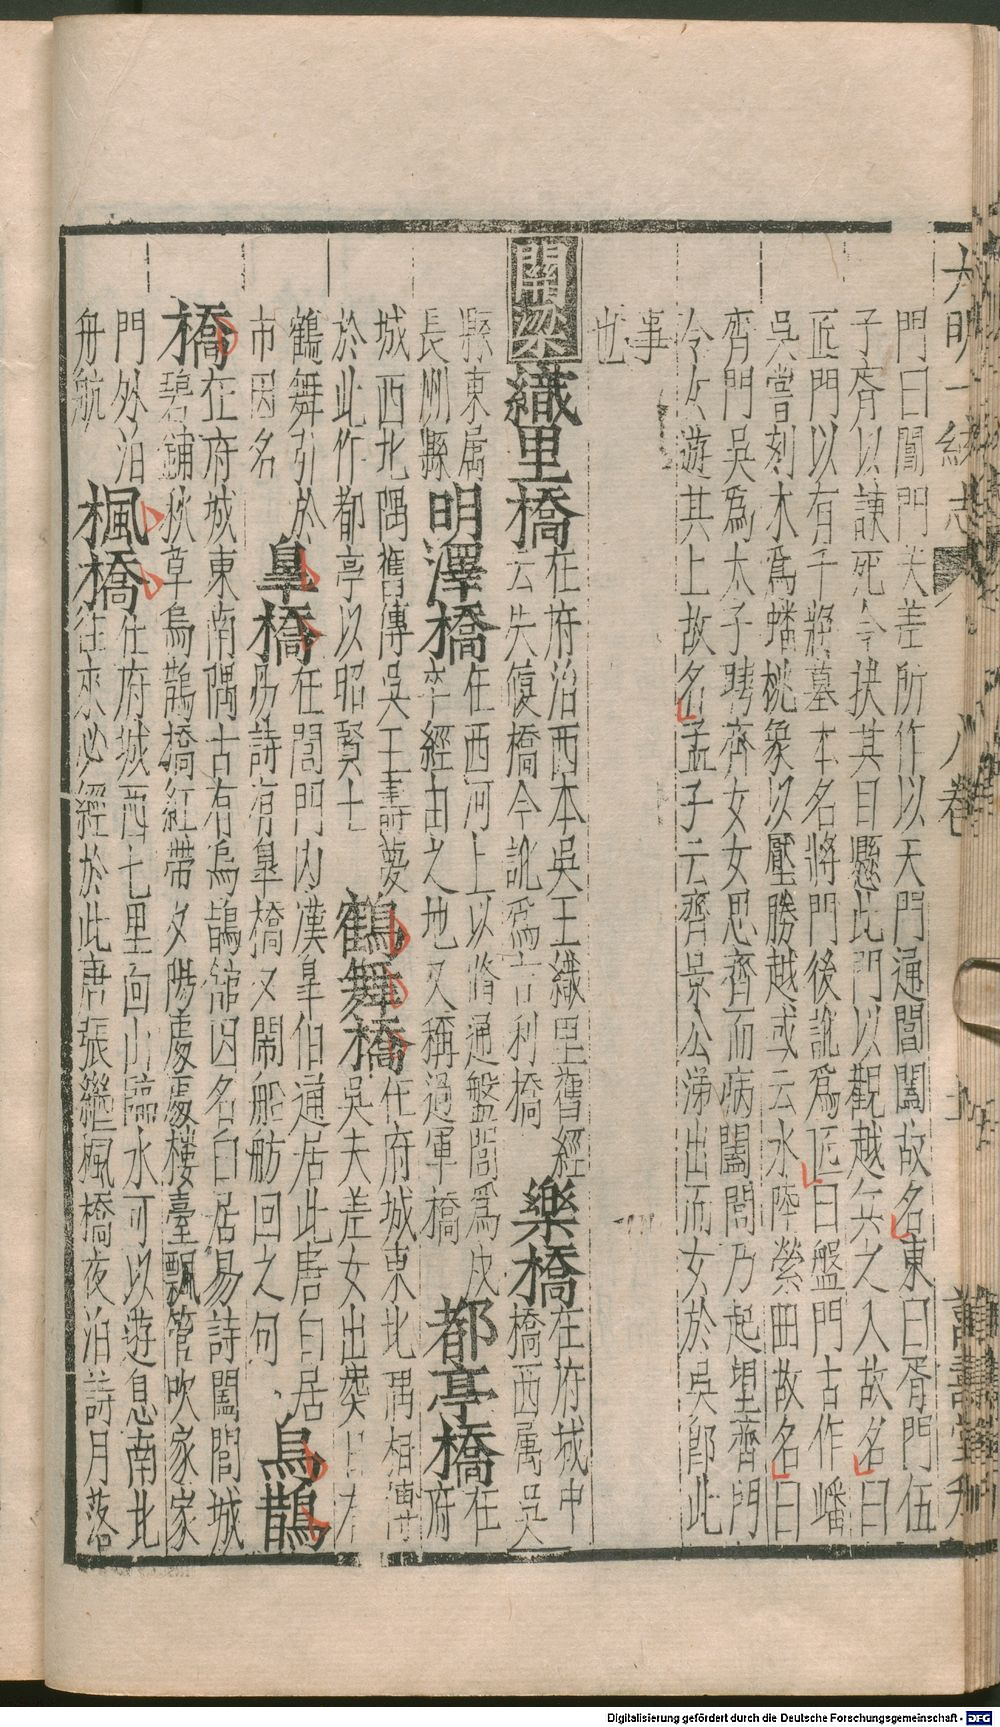 大明一統志
八卷
萬壽堂刊
門曰閶門夫差所作以天門通閶闔故名東曰胥門伍
子胥以諫死令抉其目懸此門以觀越兵之入故名曰
匠門以有干將墓本名將門後訛爲匠曰盤門古作蟠
吳嘗刻木爲蟠桃象以壓勝越或云水陸縈田故名曰
齊門吳爲太子聘齊女女思齊而病闔閭乃起望齊門
令女遊其上故名孟子云齊景公涕出而女於吳卽此
事
也
關梁
織里橋在府治西本吳王織里舊經
云失復橋今訛爲吉利橋
樂橋在府城中
橋西属吳
縣東属
長洲縣
明澤橋在西河上以脩通盤閭爲戍
卒經由之地又稱過軍橋
都亭橋在府
城西北隅舊傳吳王壽夢
於此作都亭以昭賢士
鶴舞橋在府城東北隅相傳
吳夫差女出葬
鶴舞引於
市因名
皐橋在閶門內漢皐伯通居此唐白居
易詩有皐橋又鬧船舫回之句
烏鵲
橋在府城東南隅古有烏鵲舘因名白居易詩闔閭城
碧鋪秋草烏鵲橋紅帶夕陽處處樓臺飄管吹家家
門外泊
舟航
楓橋在府城西七里面山臨水可以遊息南北
往來必經於此唐張繼楓橋夜泊詩月落
Digitalisierung gefördert durch die Deutsche Forschungsgemeinschaft - DFG